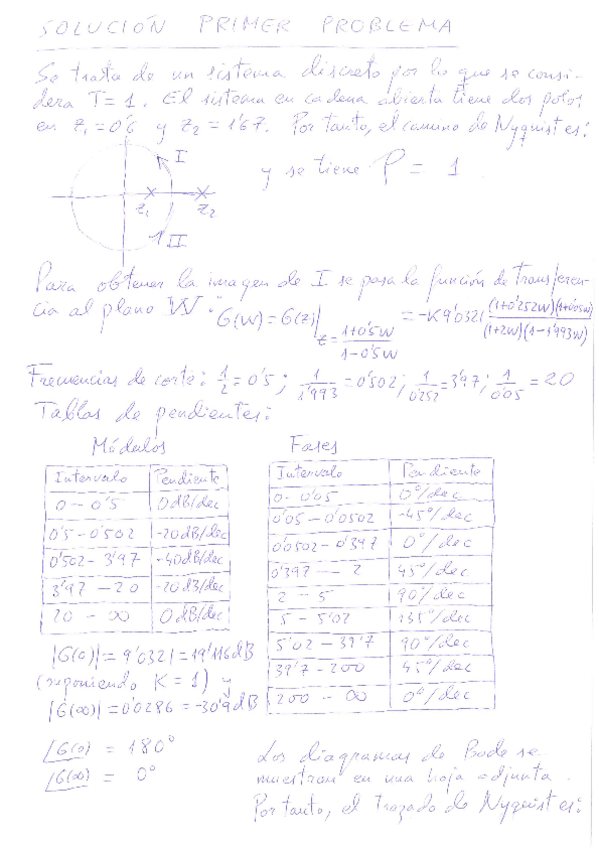 SOLUCIÓN PRIMER PROBLEMA
Se trata de un sistema discreto por lo que se consi-
dera T=1. El sistema en cadena abierta tiene dos polos
en z₁=0'6 y z₂=1'67. Por tanto, el camino de Nyquist es:
I
y se tiene P = 1.
z₁ z₂
II
Para obtener la imagen de I se pasa la función de transferen-
cia al plano W: G(W)=G(z)|z=(1+0'5W)/(1-0'5W) = -K9'0321 (1+0'252W)(1+0'05W)/(1+2W)(1-1'993W)
Frecuencias de corte: 1/2=0'5; 1/1'993=0'502; 1/0'252=3'97; 1/0'05=20
Tablas de pendientes:
Módulos
Intervalo Pendiente
0 - 0'5 0dB/dec
0'5-0'502 -20dB/dec
0'502-3'97 -40dB/dec
3'97-20 -20dB/dec
20 - ∞ 0dB/dec
Fases
Intervalo Pendiente
0-0'05 0°/dec
0'05-0'0502 -45°/dec
0'0502-0'397 0°/dec
0'397 - 2 45°/dec
2 - 5 90°/dec
5 - 5'02 135°/dec
5'02-39'7 90°/dec
39'7-200 45°/dec
200 - ∞ 0°/dec
|G(0)|=9'0321=19'116dB
(suponiendo K=1) y
|G(∞)|=0'0286=-30'9dB
∠G(0) = 180°
∠G(∞) = 0°
Los diagramas de Bode se
muestran en una hoja adjunta.
Por tanto, el trazado de Nyquist es: